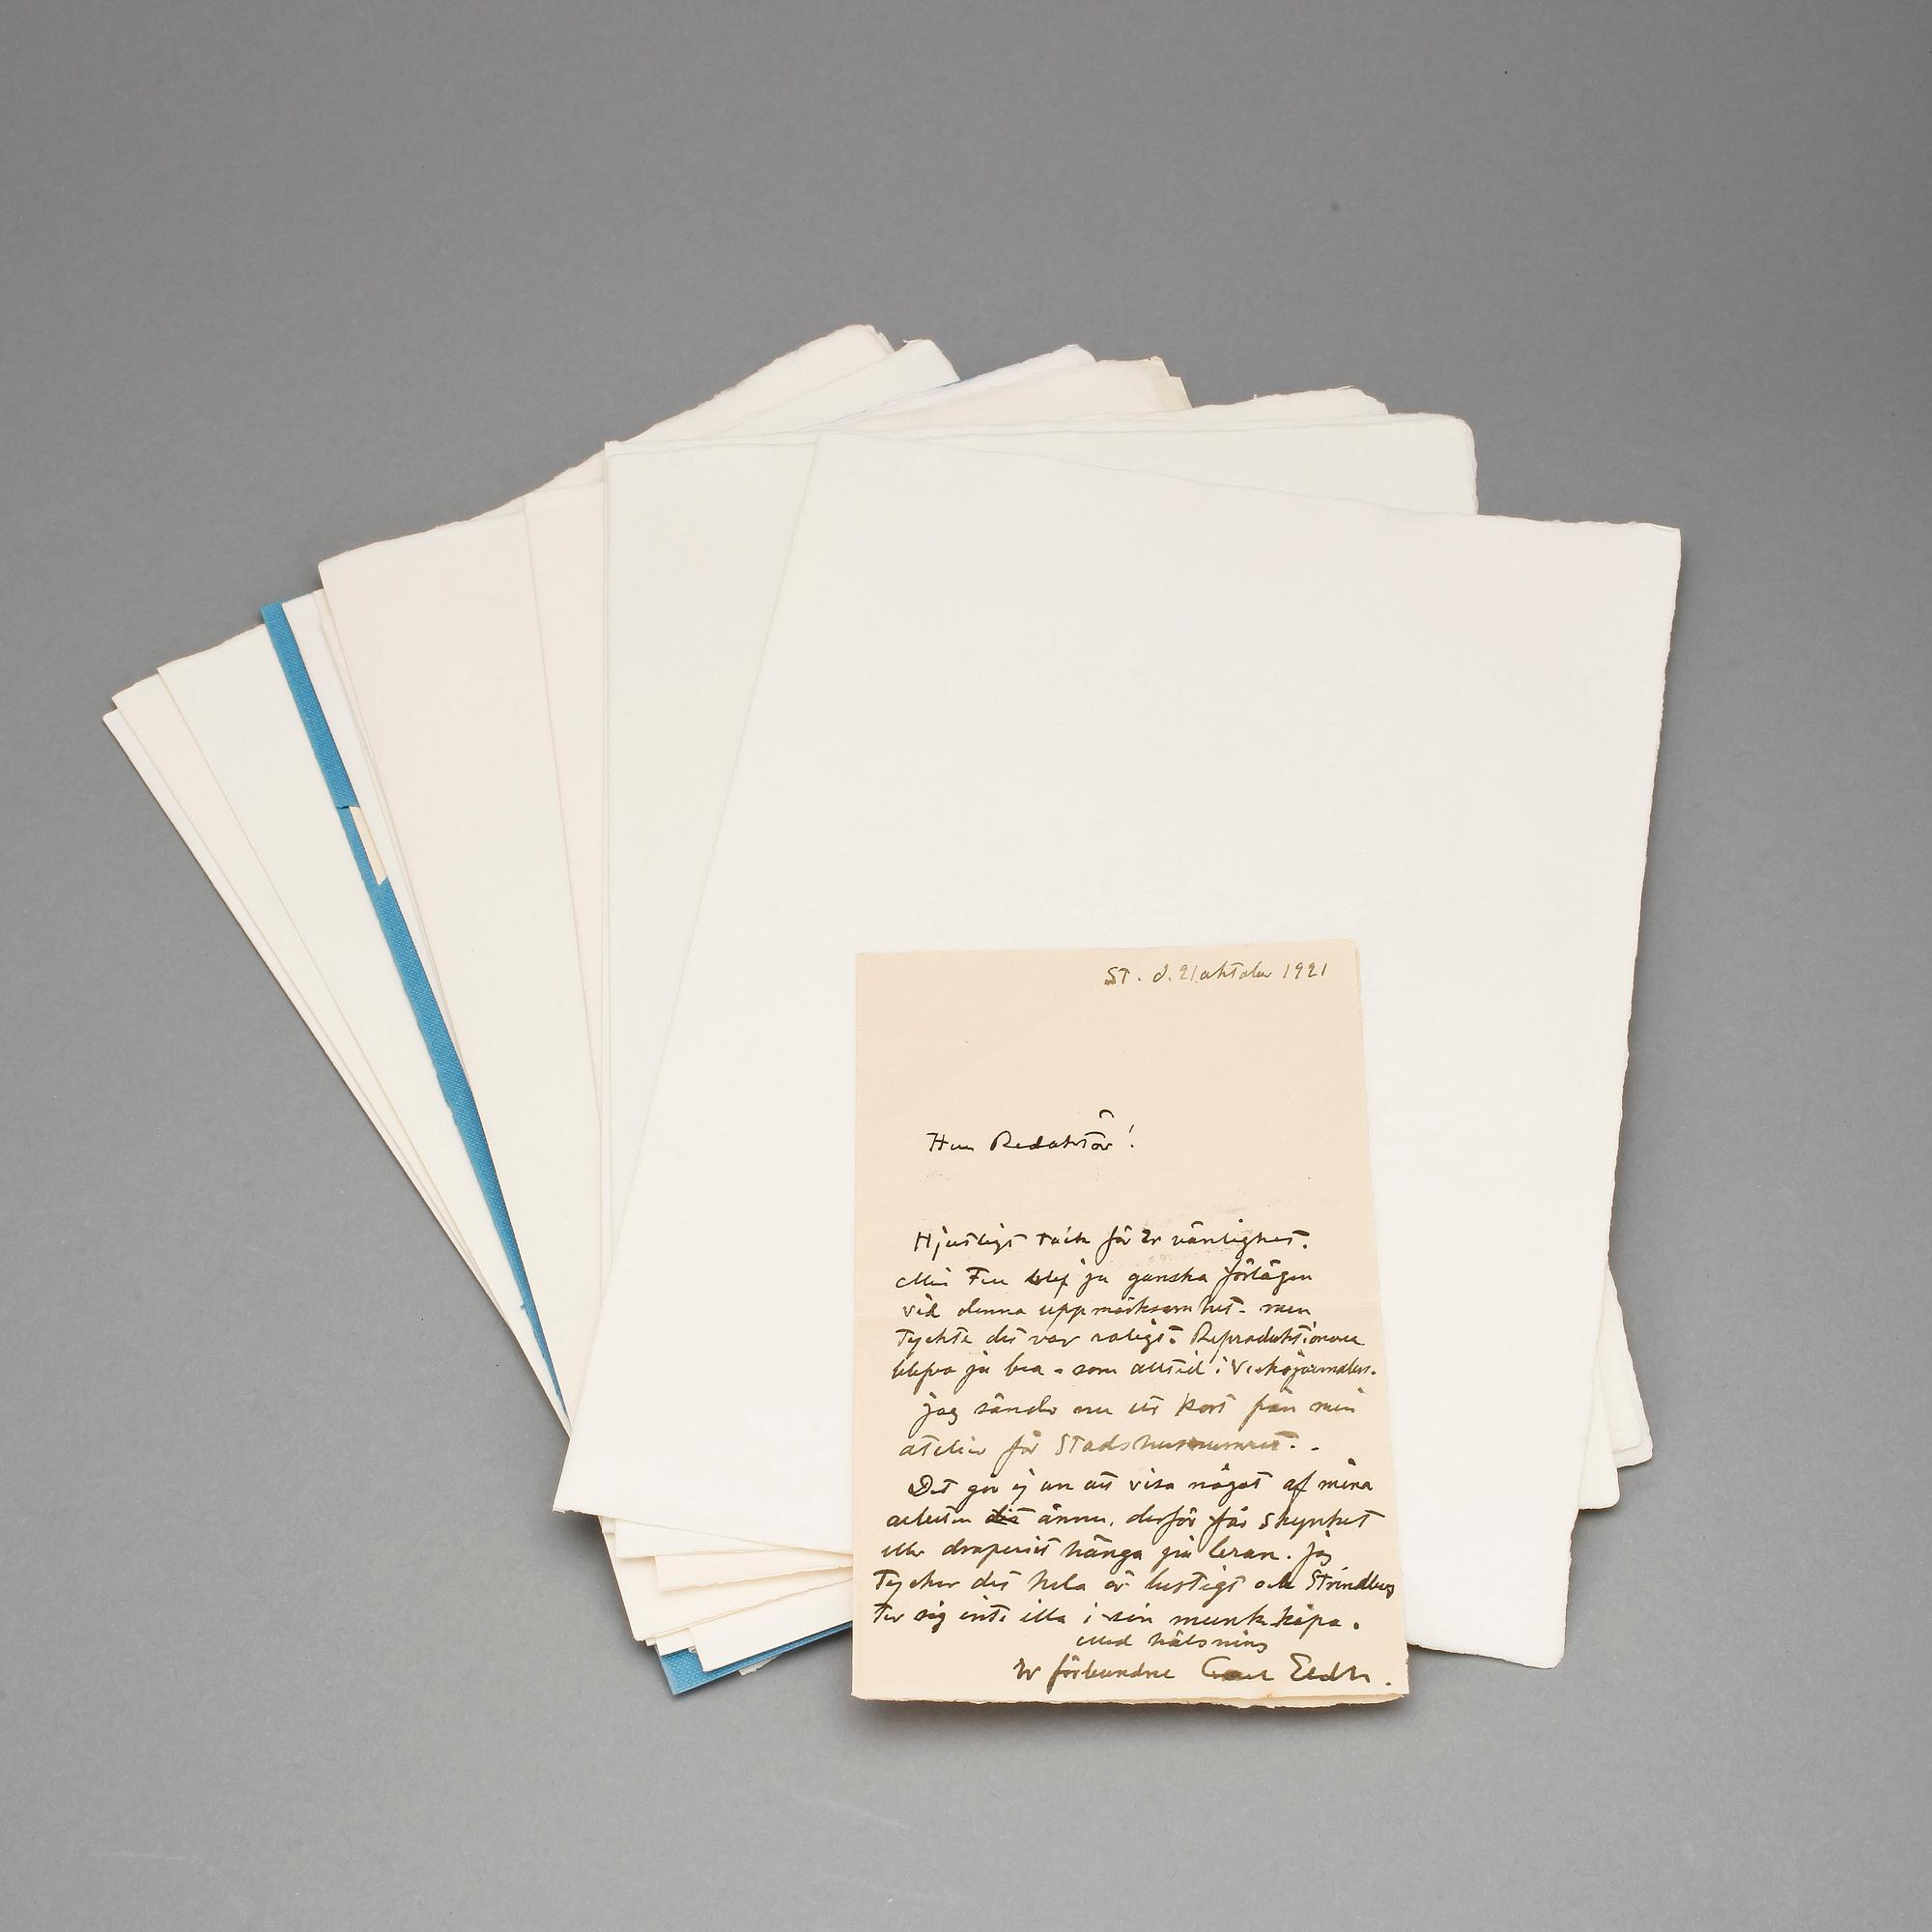 St. d. 21 oktober 1921
Herr Redaktör!
Hjertligt tack för Er vänlighet.
Min Fru blef ju ganska förlägen
vid denna uppmärksamhet - men
tyckte det var roligt. Reproduktionerna
blefvo ju bra - som alltid i Veckojournalen.
jag sänder nu ett kort från min
atelier för Stadshusnumret. -
Det går ej an att visa något af mina
arbeten ännu, derför får skynket
eller draperiet hänga på leran. Jag
tycker det hela är lustigt och Strindberg
ter sig inte illa i sin munkkåpa.
Med hälsning
Er förbundne Carl Eldh.